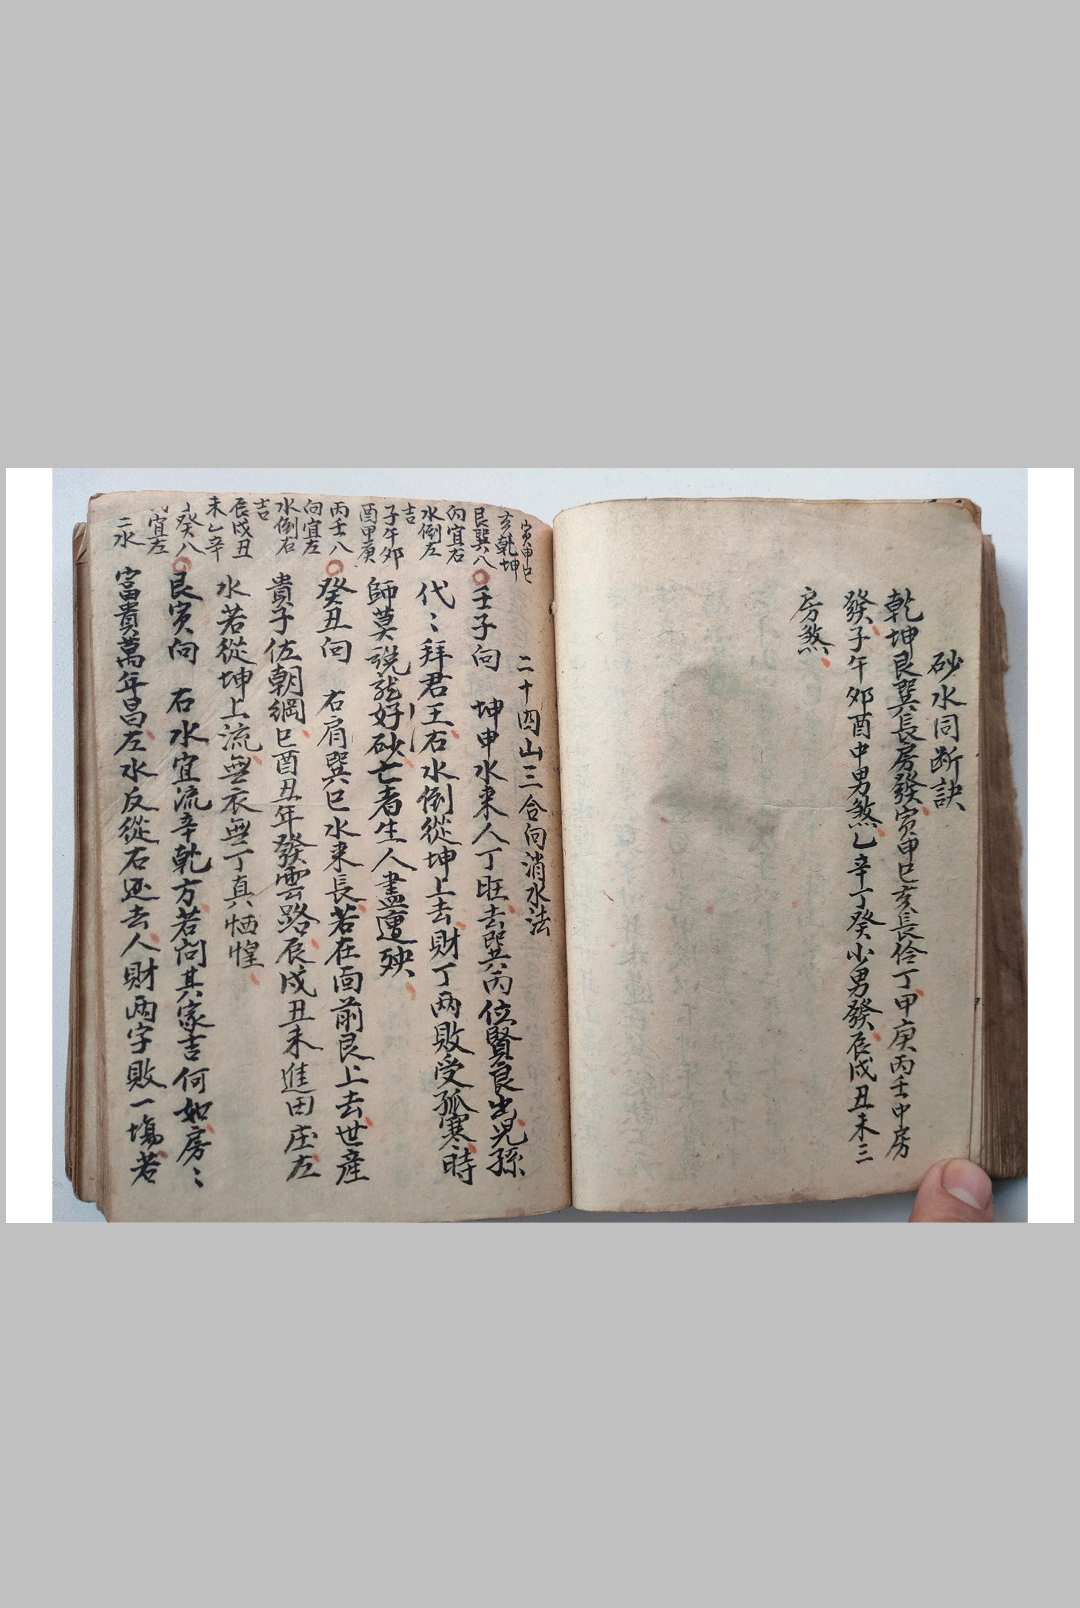 砂水同断訣
乾坤艮巽長房發寅申巳亥長伶丁甲庚丙壬中房
發子午夘酉中男煞乙辛丁癸小男發辰戌丑未三
房煞
二十四山三合向消水法
寅申巳
亥乾坤
艮巽八
向宜右
水倒左
吉
子午夘
酉甲庚
丙壬八
向宜左
水倒右
吉
辰戌丑
未乙辛
癸八
宜左
二水
壬子向 坤申水来人丁旺去巽丙位賢良出児孫
代〻拜君王右水倒從坤上去財丁両敗受孤寒時
師莫説龍好砂亡者生人盡遭殃
癸丑向 右肩巽巳水来長若在面前艮上去世産
貴子佐朝綱巳酉丑年發雲路辰戌丑未進田庄左
水若從坤上流無衣無丁真恓惶
艮寅向 右水宜流辛乾方若向其家吉何如房〻
富貴萬年昌左水反從右边去人財両字敗一塲若